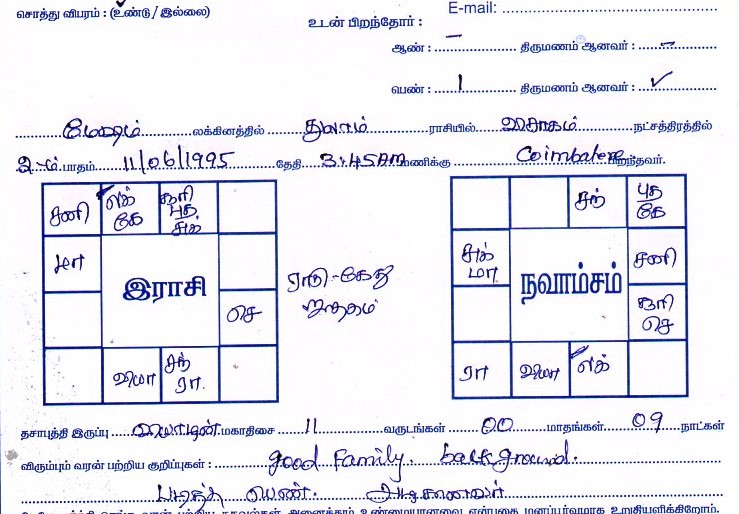 சொத்து விபரம் : (உண்டு / இல்லை)
E-mail:
உடன் பிறந்தோர் :
ஆண் : – திருமணம் ஆனவர் : –
பெண் : 1 திருமணம் ஆனவர் : ✓
மேஷம் லக்கினத்தில் துலாம் ராசியில் விசாகம் நட்சத்திரத்தில்
2-ம் பாதம் 11/06/1995 தேதி 3:45AM மணிக்கு Coimbatore பிறந்தவர்.
சனி லக் கே சூரி புத சுக் சுந் புத கே
மா சுக் மா சனி
இராசி ராகு - கேது ஜாதகம் நவாம்சம்
செ சூரி செ
வியா சந் ரா. ரா வியா லக்
தசாபுத்தி இருப்பு மகாதிசை 11 வருடங்கள் 00 மாதங்கள் 09 நாட்கள்
விரும்பும் வரன் பற்றிய குறிப்புகள் : good family. back ground.
படித்த பெண்.